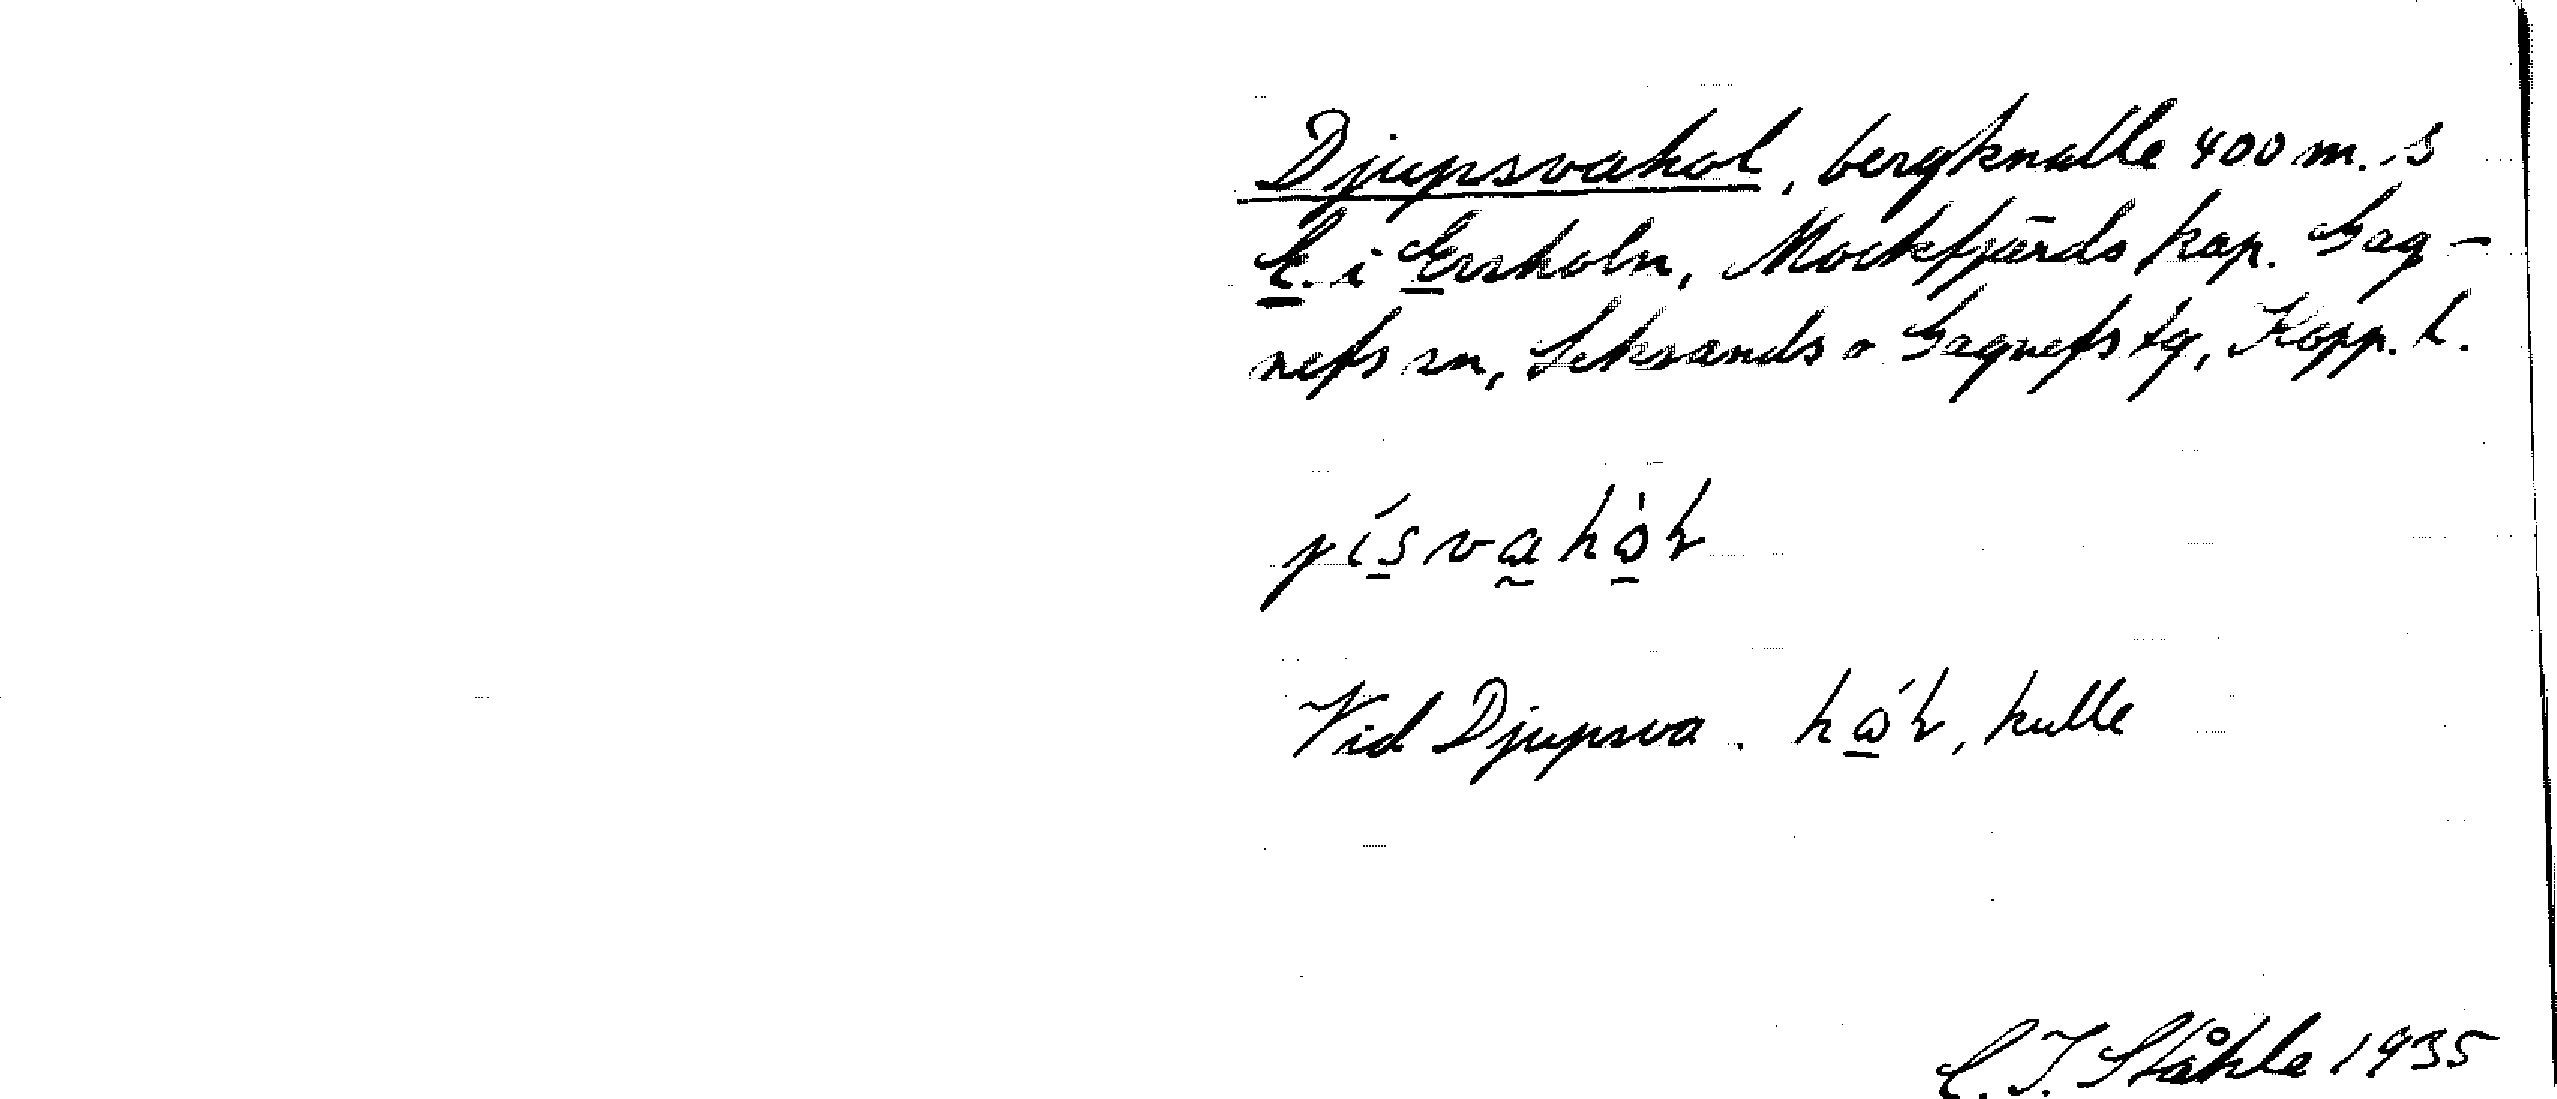 Djupsvahol, bergknalle 400 m. S
E. i Ersholn, Mockfjärds kap. Gag-
nefs sn, Leksands o Gagnefs tg, Kopp. l.
Vid Djupsva. hól, kulle
C. I. Ståhle 1935